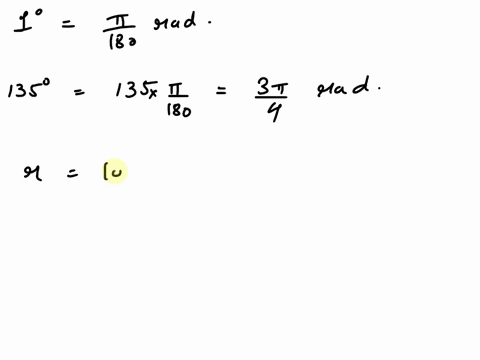 1° = π/180 rad.
135° = 135 x π/180 = 3π/4 rad.
r = 10